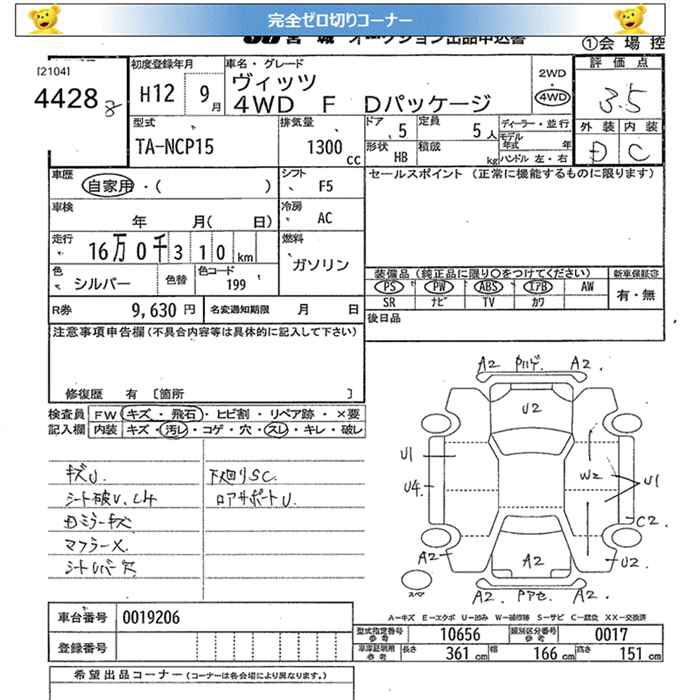 完全ゼロ切りコーナー
JU宮城 オークション出品申込書
①会場控
[2104]
4428
初度登録年月 H12 9月
車名・グレード ヴィッツ
4WD F Dパッケージ
2WD ・ 4WD
評価点 3.5
外装 内装
D C
型式 TA-NCP15
排気量 1300 CC
ドア 5
定員 5人
ディーラー・並行
モデル年式 年
形状 HB
積載 kg
ハンドル 左・右
車歴 自家用・( )
シフト F5
セールスポイント (正常に機能するものに限ります)
車検 年 月( 日)
冷房 AC
走行 16万0千310km
燃料 ガソリン
色 シルバー
色替
色コード 199
装備品 (純正品に限り○をつけてください)
新車保証書
PS PW ABS エアB AW
有・無
SR ナビ TV カワ
R券 9,630円
名変通知期限 月 日
後日品
注意事項申告欄 (不具合内容等は具体的に記入して下さい)
修復歴 有 [箇所 ]
検査員記入欄
FW キズ・飛石・ヒビ割・リペア跡・×要
内装 キズ・汚レ・コゲ・穴・スレ・キレ・破レ
キズU.
シート破レ.
Dミラーキズ
マフラーX.
下廻りSC.
ロアサポートU.
A2 Pハゲ. A2.
U2
U1
U4
W2
U1
C2
A2
A2
U2
スペア
A2. Pアセ. A2.
A…キズ E…エクボ U…凹み W…補修跡 S…サビ C…腐食 XX…交換済
車台番号 0019206
登録番号
型式指定番号 参考 10656
類別区分番号 参考 0017
車庫証明用 参考 長さ 361cm 幅 166cm 高さ 151cm
希望出品コーナー (コーナーは各会場により異なります。)